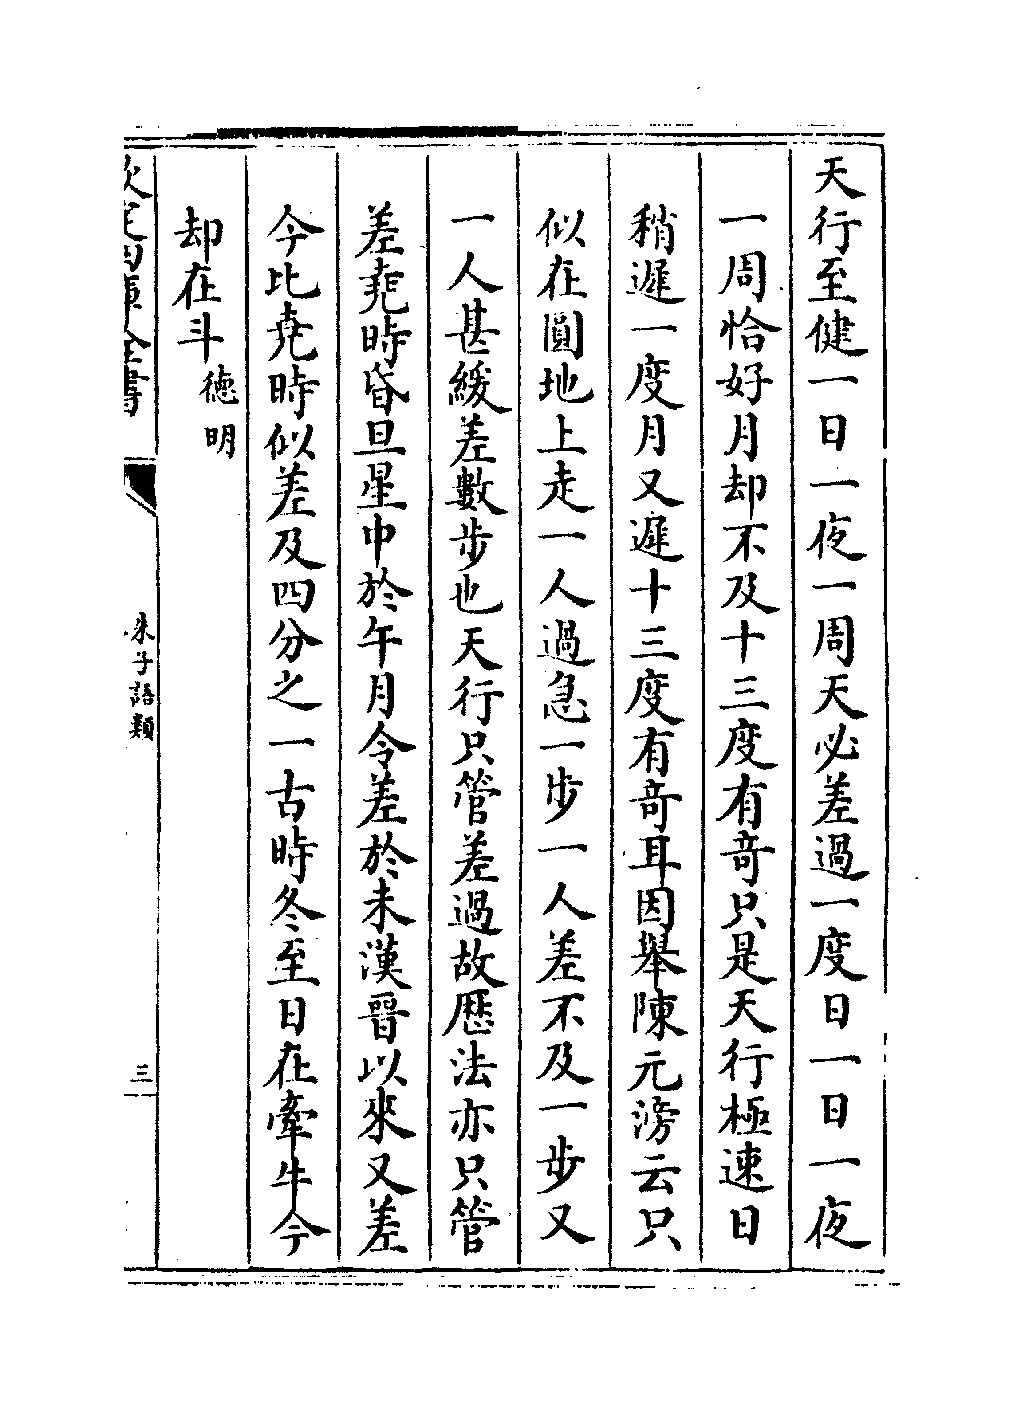 天行至健一日一夜一周天必差過一度日一日一夜
一周恰好月却不及十三度有竒只是天行極速日
稍遲一度月又遲十三度有竒耳因舉陳元滂云只
似在圓地上走一人過急一步一人差不及一步又
一人甚緩差數步也天行只管差過故厯法亦只管
差堯時昏旦星中於午月令差於未漢晉以來又差
今比堯時似差及四分之一古時冬至日在牽牛今
却在斗德明
欽定四庫全書
朱子語類
三